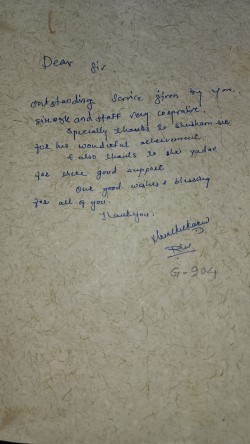 Dear Sir
outstanding Service given by you.
and staff very cooprative.
Specially thanks to Shubham sir
for his wonderful achievement
& also thanks to shri yadav
for there good support
Our good wishes & blessing
for all of you.
Thankyou.
G-904